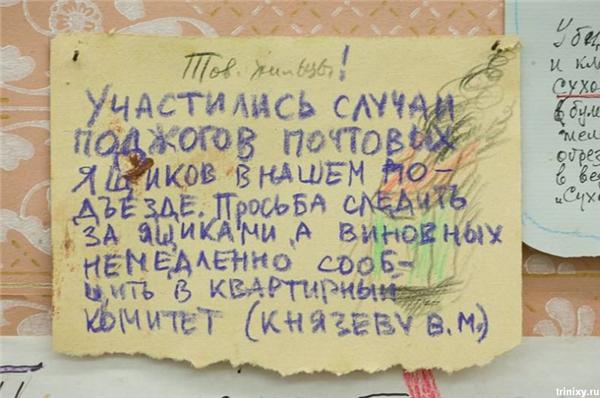 Тов. жильцы!
УЧАСТИЛИСЬ СЛУЧАИ
ПОДЖОГОВ ПОЧТОВЫХ
ЯЩИКОВ В НАШЕМ ПО-
ДЪЕЗДЕ. ПРОСЬБА СЛЕДИТЬ
ЗА ЯЩИКАМИ, А ВИНОВНЫХ
НЕМЕДЛЕННО СООБ-
ЩИТЬ В КВАРТИРНЫЙ
КОМИТЕТ (КНЯЗЕВУ В.М.)
и кл
сухо
в бум
обрез
в ве
„Сух
trinixy.ru